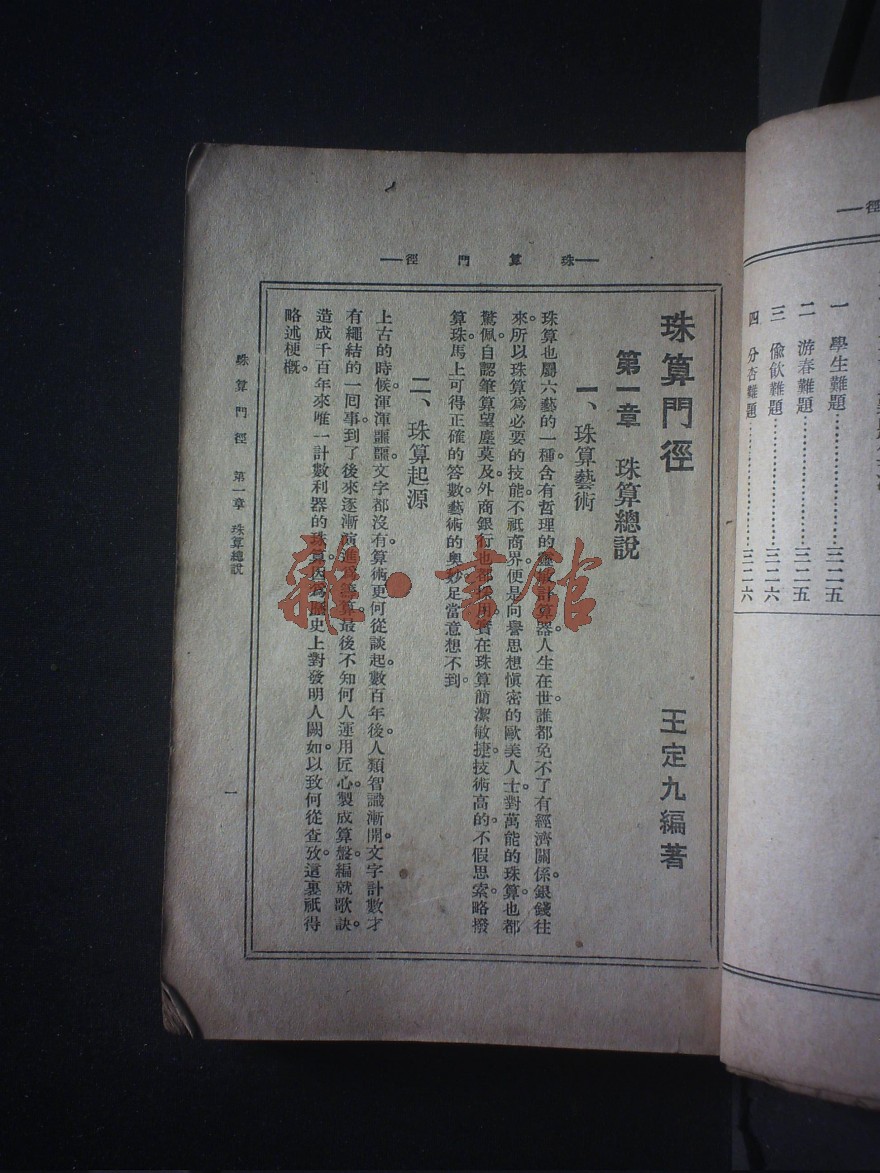 徑
一 學生難題……………………三二五
二 游春難題……………………三二五
三 偷飲難題……………………三二六
四 分杏難題……………………三二六
珠算門徑
珠算門徑 王定九編著
第一章 珠算總說
一、珠算藝術
珠算也屬六藝的一種。含有哲理的靈敏計算器。人生在世。誰都免不了有經濟關係。銀錢往
來。所以珠算爲必要的技能。不祇商界。便是向譽思想愼密的歐美人士。對萬能的珠算。也都
驚佩。自認筆算望塵莫及。外商銀行也都採用。實在珠算簡潔敏捷。技術高的。不假思索。略撥
算珠。馬上可得正確的答數。藝術的奧妙。足當意想不到。
二、珠算起源
上古的時候。渾渾噩噩。文字都沒有。算術更何從談起。數百年後。人類智識漸開。文字計數才
有繩結的一回事。到了後來。逐漸演進爲籌算。最後不知何人運用匠心。製成算盤。編就歌訣。
造成千百年來唯一計數利器的珠算。因爲歷史上對發明人闕如。以致何從查攷。這裏祇得
略述梗概。
珠算門徑 第一章 珠算總說
一
雜·書館